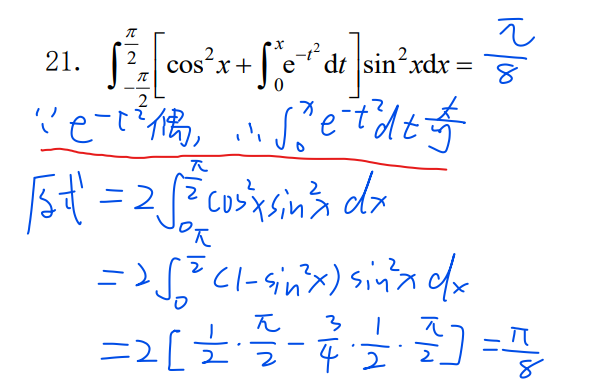 21. ∫_{-π/2}^{π/2} [cos²x + ∫_0^x e^{-t²} dt] sin²xdx = π/8
∵ e^{-t²}偶, ∴ ∫_0^x e^{-t²}dt 奇
原式 = 2∫_0^{π/2} cos²x sin²x dx
= 2∫_0^{π/2} (1-sin²x) sin²x dx
= 2[1/2 · π/2 - 3/4 · 1/2 · π/2] = π/8